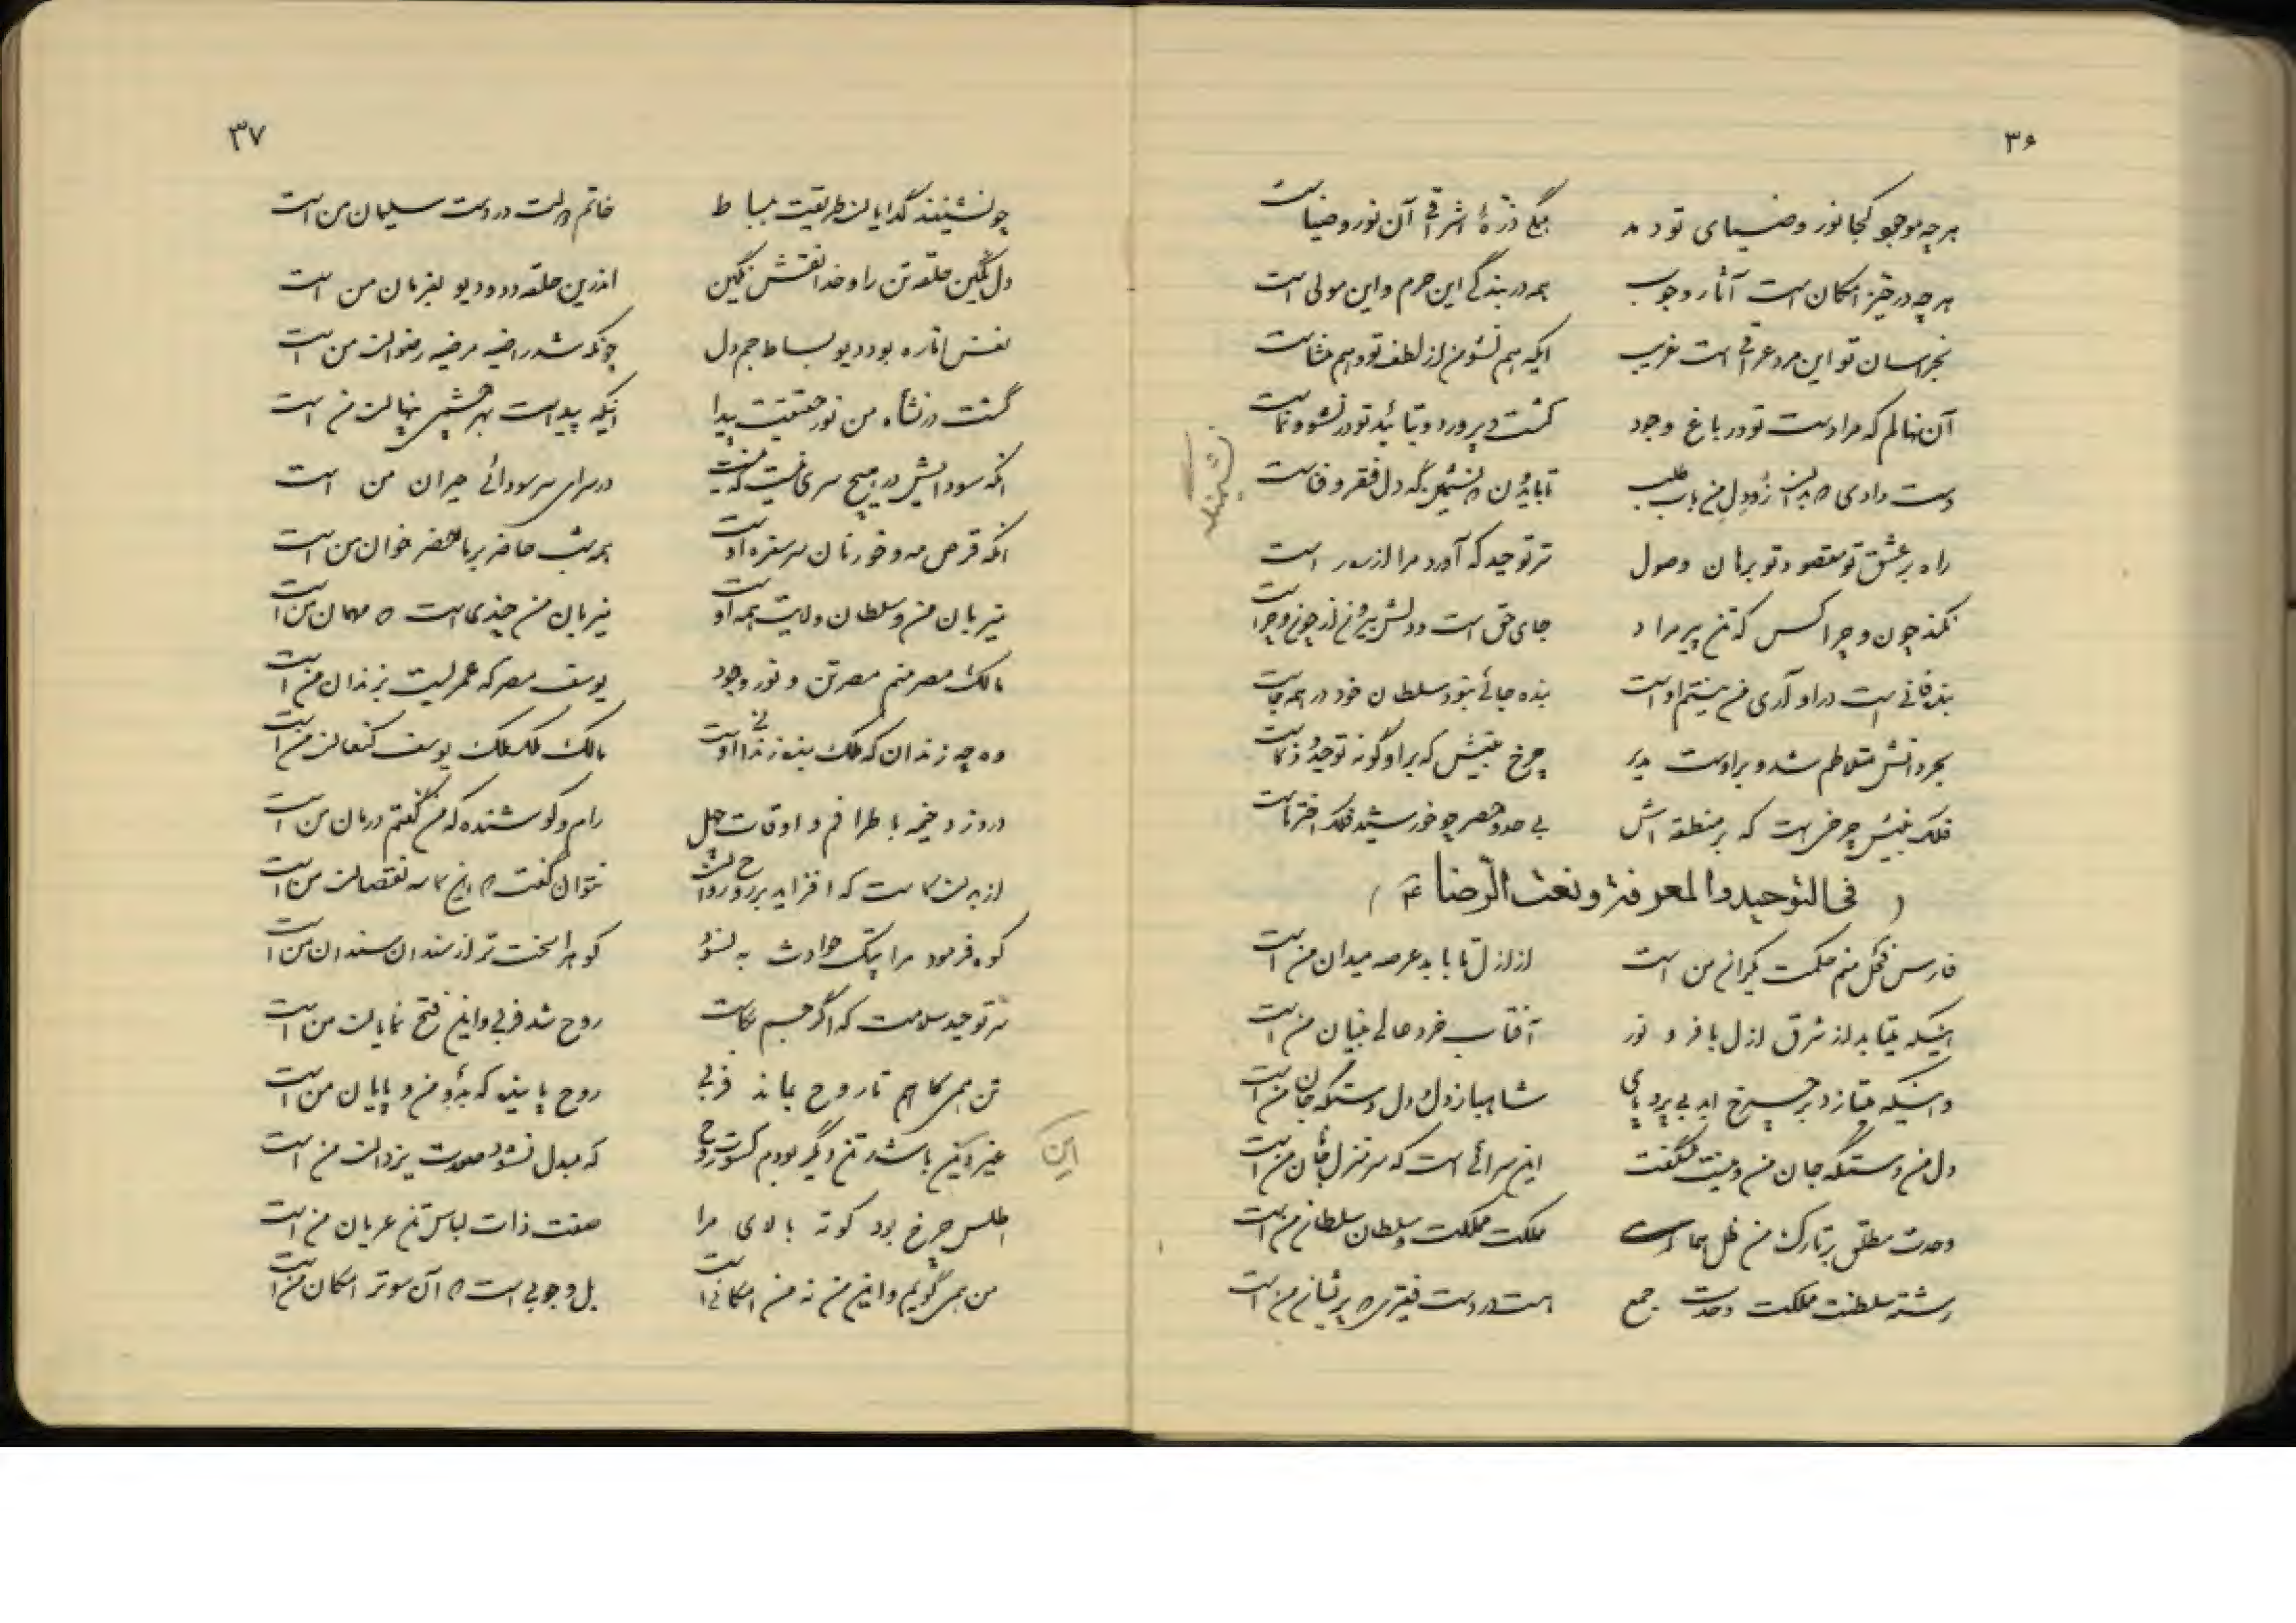 ۳۶
هرچه موجود کجا نور و ضیای تو دمد یکی ذرهٔ اشراقی آن نور و ضیاست
هرچه در حیز امکان است آثار وجوب همه در بندگی این حرم و این مولی است
بخراسان تو این مرد عراقی است غریب ایکه هم نشو من از لطف تو و هم منشاست
آن نهالم که مرا دست تو در باغ وجود کشت و پرورد و بتائید تو در نشو و نماست
دست دادی از در دل من باب طلب دل فقر و فناست
نشیمنگه
راه بر عشق تو مقصود تو برهان وصول سر توحید که آورد مرا از سر است
نکند چون و چرا کس که تن پیر مراد جای حق است و دلش بیرون از چون و چراست
بنده فانی است در او آری من نیستم اوست بنده جائی نبود سلطان خود در همه جاست
بحر دانش متلاطم شد و براوست مدیر چرخ بینش که بر او گونه توحید ذکاست
فلک بینش چرخی است که بر منطقه اش بی حد و حصر چو خورشید فلک اختر ماست
( فی التوحید والمعرفة و نعت الرضا ع )
فارس فحل منم حکمت یکران من است از ازل تا بابد عرصه میدان من است
اینکه میتابد از شرق ازل با فر و نور آفتاب خرد عالی بنیان من است
و اینکه میتازد بر چرخ ابد بی پر و پای شاهباز دل و دل دستگه جان من است
دل من دستگه جان من و نیست شگفت این سرائی است که سر منزل جانان من است
وحدت مطلق بر تارک من ظل هما مملکت مملکت و سلطان سلطان من است
رشته سلطنت مملکت وحدت جمع است در دست فقیری پریشان من است
۳۷
چو نشینند گدایان طریقت ببساط خاتم در دست سلیمان من است
دل نگین حلقه تن را و خدا نقش نگین اندرین حلقه دد و دیو بفرمان من است
نفس اماره بود دیو بساط جم دل چونکه شد راضیه مرضیه رضوان من است
گشت در نشاه من نور حقیقت پیدا اینکه پیداست بهر چشمی پنهان من است
آنکه سودایش در هیچ سری نیست که نیست در سرای سر سودائی حیران من است
آنکه قرص مه و خور نان سر سفره اوست همه شب حاضر بر ماحضر خوان من است
میزبان من و سلطان ولایت همه اوست میزبان من چندی است مهمان من است
مالک مصر منم مصر تن و نور وجود یوسف مصر که عمریست بزندان من است
وه چه زندان که ملک بنده زندانی اوست مالک ملک ملک یوسف کنعان من است
در وزد خیمه باطرافم و اوقات چهل رام و کو شنده که من گفتم درمان من است
از بدن کاست که افزاید بر روح نتوان گفت این کاسه نقصان من است
کوه فرمود مرا پتک حوادث به نشو کو هرا سخت تر از سندان سندان من است
سر توحید سلامت که اگر جسم بکاست روح شد فربی و این فتح نمایان من است
تن همی کاهم تا روح بماند فربی روح پاینده که بدو من و پایان من است
غیر این باشد تن دیگر بودم کسوت روح که مبدل نشود صورت یزدان من است
این
اطلس چرخ بود کوته بالای مرا صفت ذات لباس تن عریان من است
من همی گویم و این من نه من امکانی است بل وجوبی است آن سوتر امکان من است